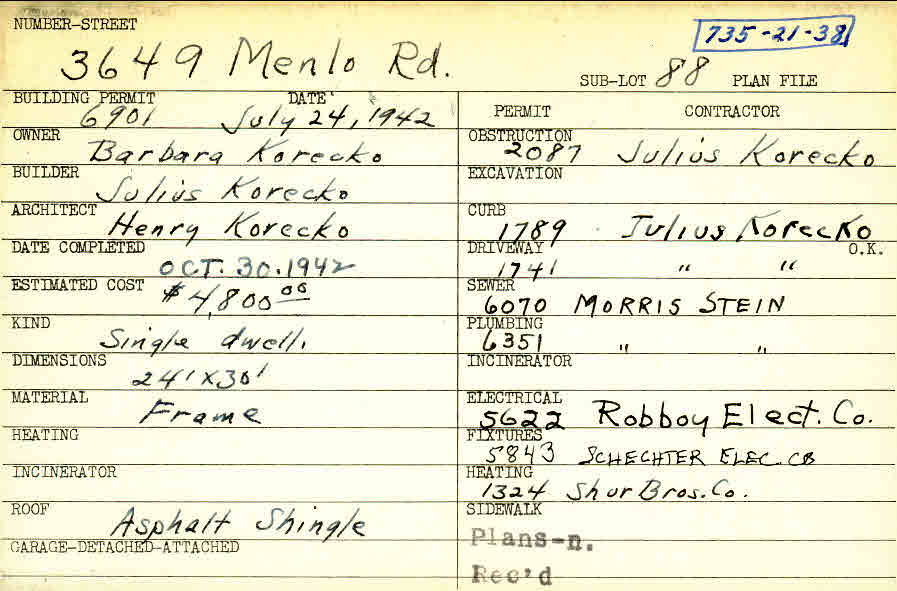 NUMBER-STREET
735-21-38
3649 Menlo Rd.
SUB-LOT 88 PLAN FILE
BUILDING PERMIT DATE
6901 July 24, 1942
OWNER
Barbara Korecko
BUILDER
Julius Korecko
ARCHITECT
Henry Korecko
DATE COMPLETED
OCT. 30. 1942
ESTIMATED COST
$4,800 00
KIND
Single dwell.
DIMENSIONS
24' x 30'
MATERIAL
Frame
HEATING
INCINERATOR
ROOF
Asphalt Shingle
GARAGE-DETACHED-ATTACHED
PERMIT CONTRACTOR
OBSTRUCTION
2087 Julius Korecko
EXCAVATION
CURB
1789 Julius Korecko
DRIVEWAY O.K.
1741 " "
SEWER
6070 MORRIS STEIN
PLUMBING
6351 " "
INCINERATOR
ELECTRICAL
5622 Robboy Elect. Co.
FIXTURES
5843 SCHECHTER ELEC. CO
HEATING
1324 Shur Bros. Co.
SIDEWALK
Plans-n.
Rec'd